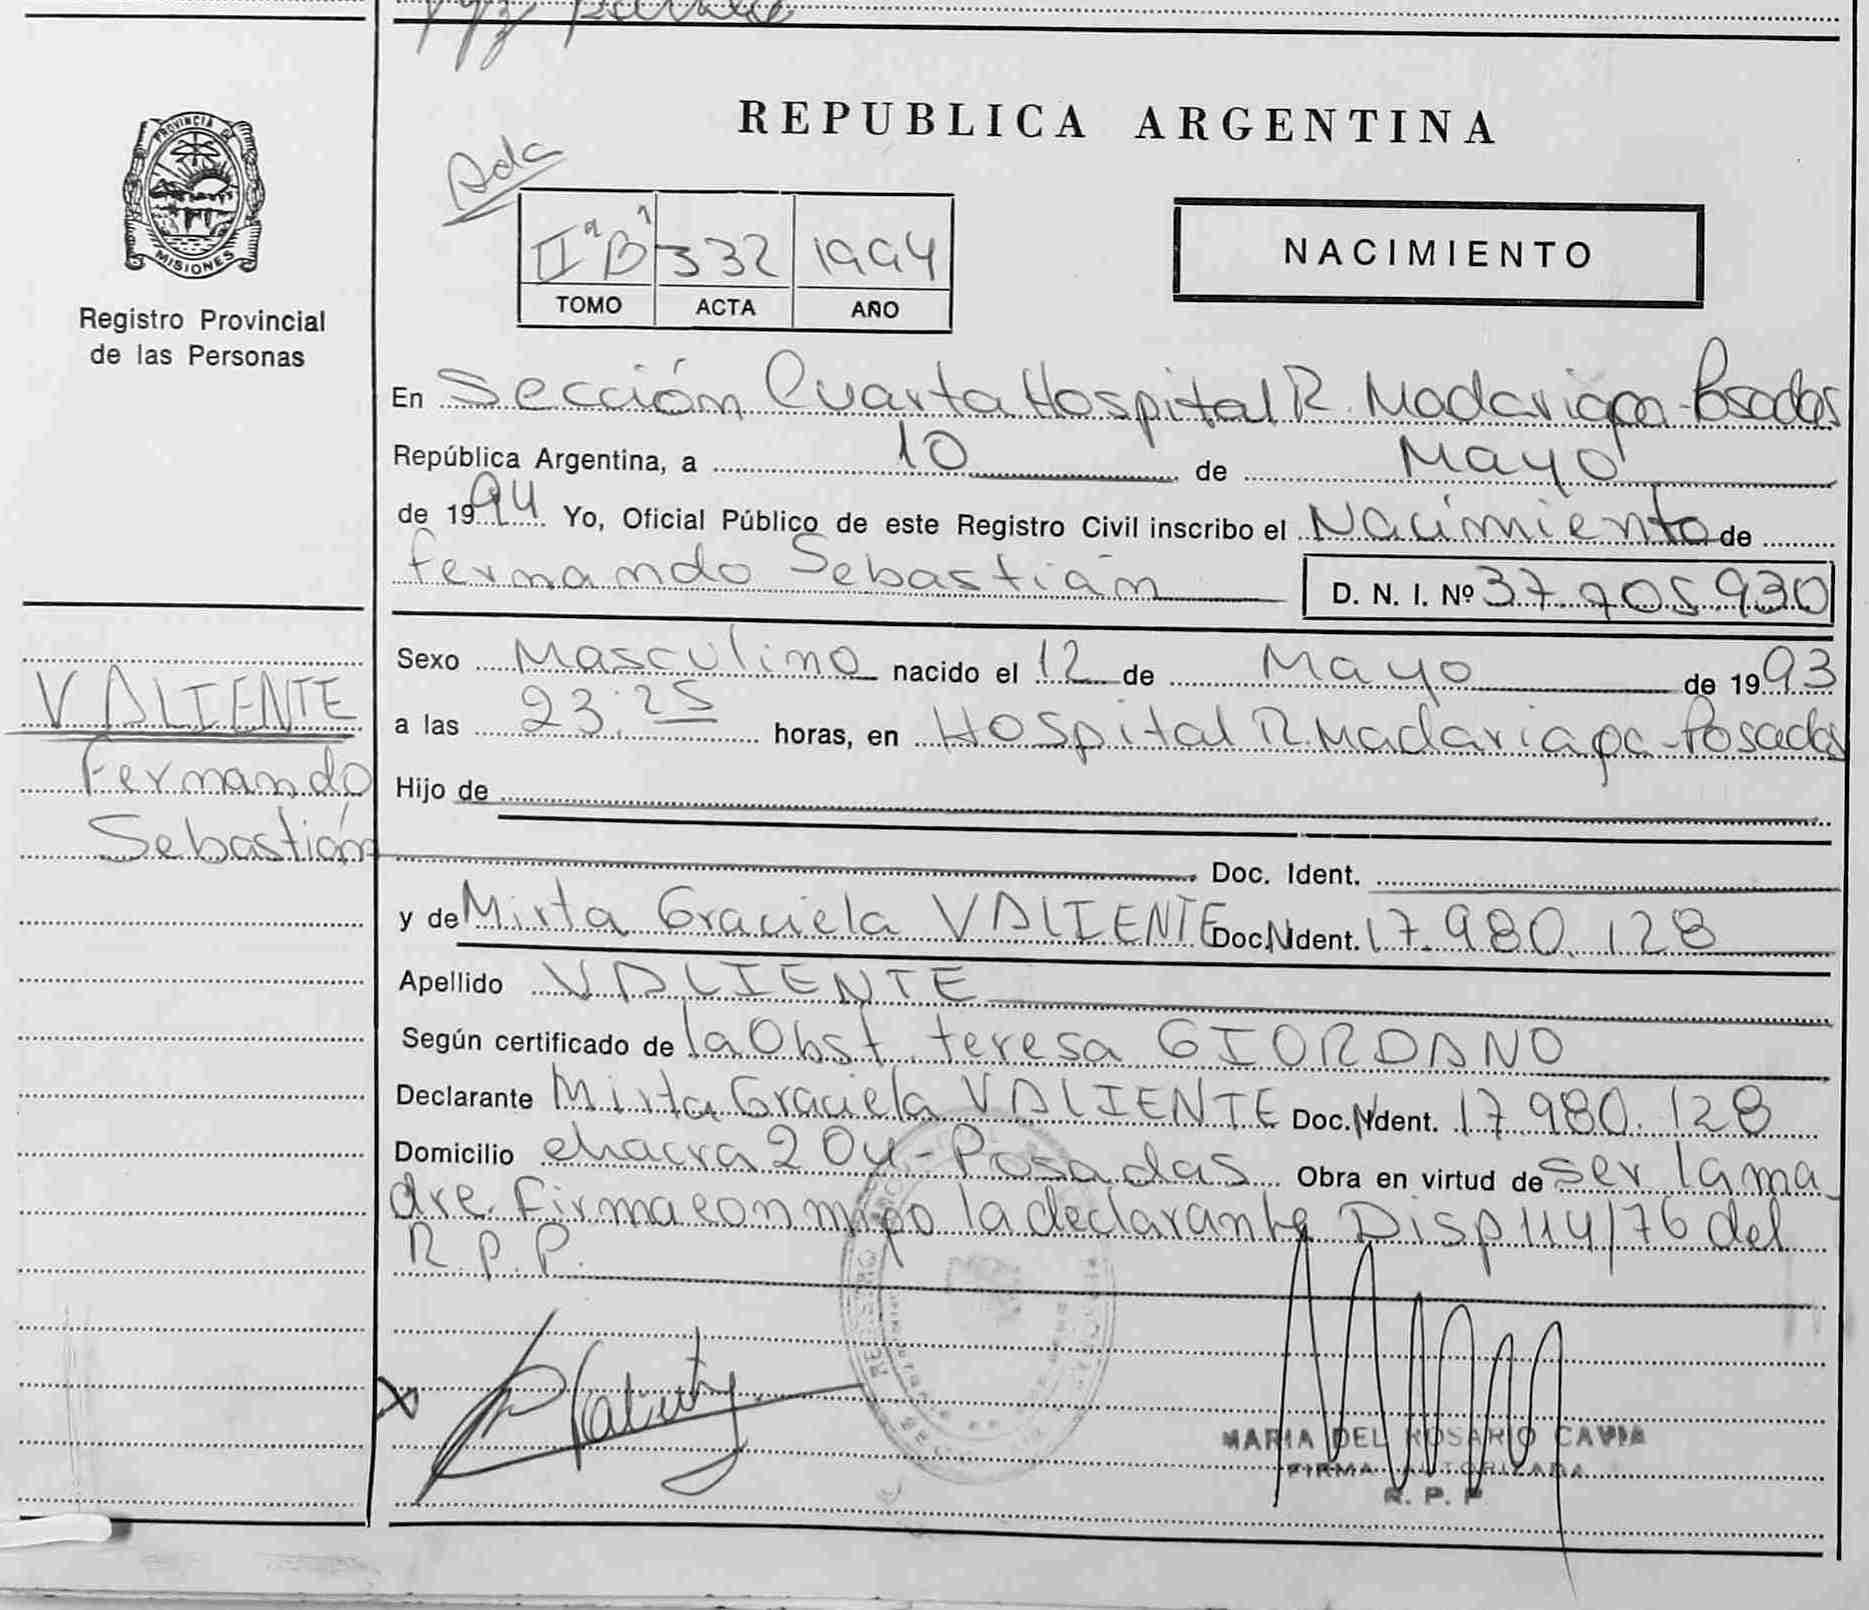 PROVINCIA DE
MISIONES
Registro Provincial
de las Personas
VALIENTE
Fernando
Sebastián
REPUBLICA ARGENTINA
Ada
II "B" 332 1994
TOMO ACTA AÑO
NACIMIENTO
En Sección Cuarta Hospital R. Madariaga - Posadas
República Argentina, a 10 de Mayo
de 1994 Yo, Oficial Público de este Registro Civil inscribo el Nacimiento de
Fernando Sebastián D. N. I. Nº 37.705.930
Sexo Masculino nacido el 12 de Mayo de 1993
a las 23:25 horas, en Hospital R. Madariaga - Posadas
Hijo de
Doc. Ident.
y de Mirta Graciela VALIENTE Doc. Ident. 17.980.128
Apellido VALIENTE
Según certificado de la Obst. teresa GIORDANO
Declarante Mirta Graciela VALIENTE Doc. Ident. 17.980.128
Domicilio chacra 204 - Posadas Obra en virtud de ser la ma_
dre. Firma conmigo la declarante Disp 114/76 del
R.P.P.
MARIA DEL ROSARIO CAVIA
FIRMA AUTORIZADA
R. P. P.